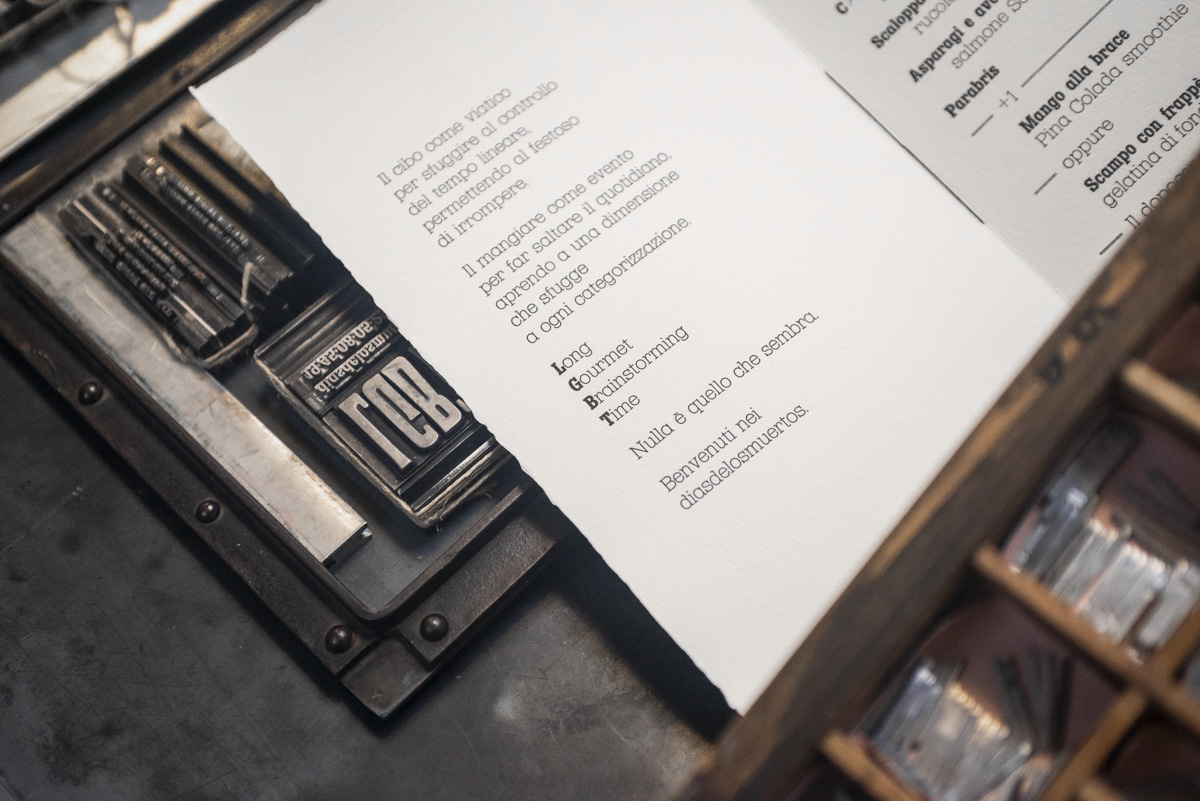 Il cibo come viatico
per sfuggire al controllo
del tempo lineare,
permettendo al festoso
di irrompere.
Il mangiare come evento
per far saltare il quotidiano,
aprendo a una dimensione
che sfugge
a ogni categorizzazione.
Long
Gourmet
Brainstorming
Time
Nulla è quello che sembra.
Benvenuti nei
diasdelosmuertos.
Asparagi e
salmone
Parabris
+1
Mango alla brace
Pina Colada smoothie
oppure
Scampo con frappè
gelatina di
Il